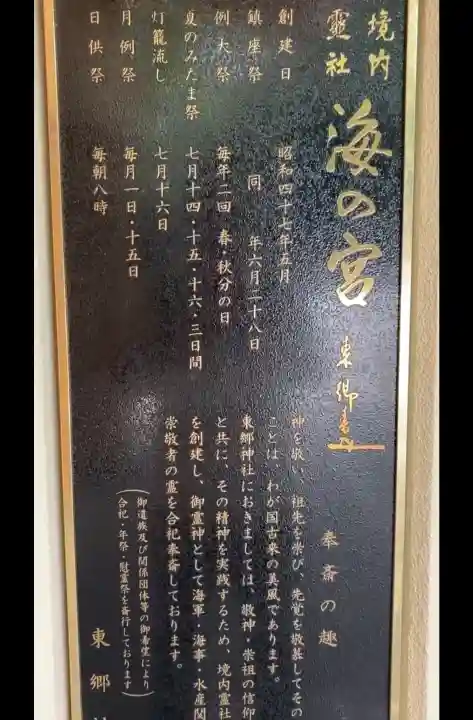 境内
靈社
海の宮
東郷
創建日 昭和四十七年五月
鎮座祭 同 年六月二十八日
例大祭 毎年二回 春・秋分の日
夏のみたま祭 七月十四・十五・十六・三日間
灯籠流し 七月十六日
月例祭 毎月一日・十五日
日供祭 毎朝八時
奉斎の趣
神を敬い、祖先を崇び、先覚を敬慕してその
ことは、わが国古来の美風であります。
東郷神社におきましては、敬神・崇祖の信仰
と共に、その精神を実践するため、境内霊社
を創建し、御霊神として海軍・海事・水産関
崇敬者の霊を合祀奉斎しております。
(御遺族及び関係団体等の御希望により
合祀・年祭・慰霊祭を斎行しております)
東郷